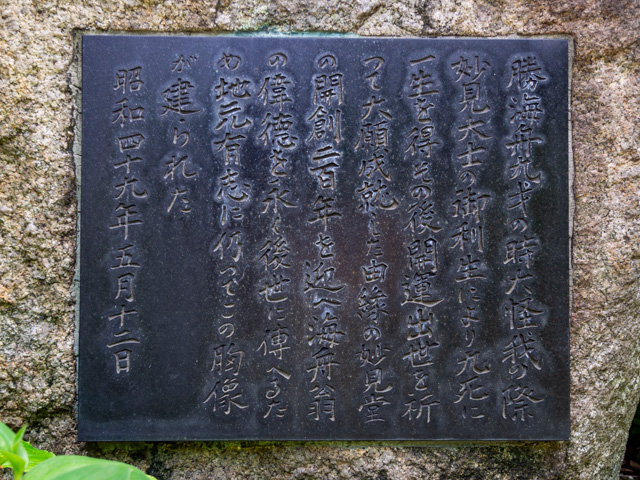 勝海舟九才の時大怪我の際
妙見大士の御利生により九死に
一生を得その後開運出世を祈
って大願成就した由緣の妙見堂
の開創二百年を迎へ海舟翁
の偉徳を永く後世に傳へるた
め地元有志に仍ってこの胸像
が建られた
昭和四十九年五月十二日